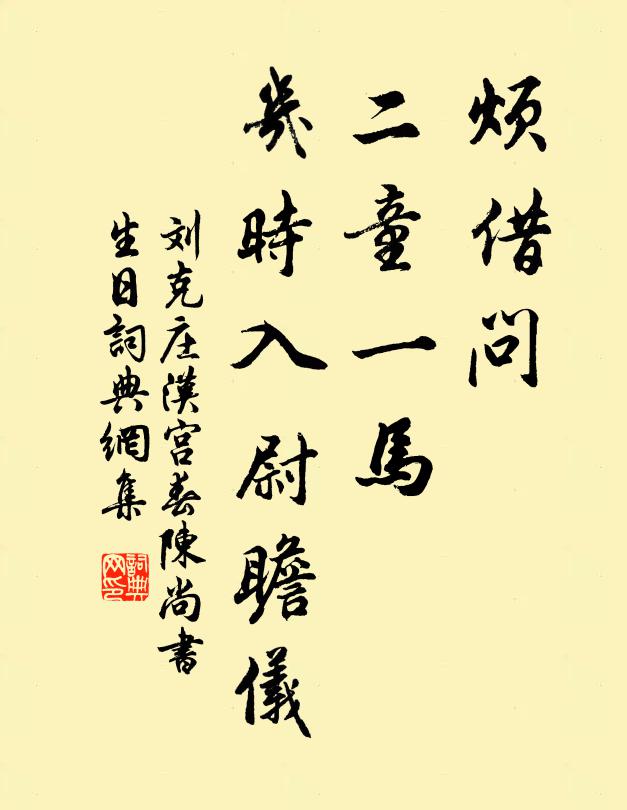 煩借問
二童一馬
幾時入尉瞻儀
刘克庄漢宮春陳尚書
生日詞典網集
詞典
网印